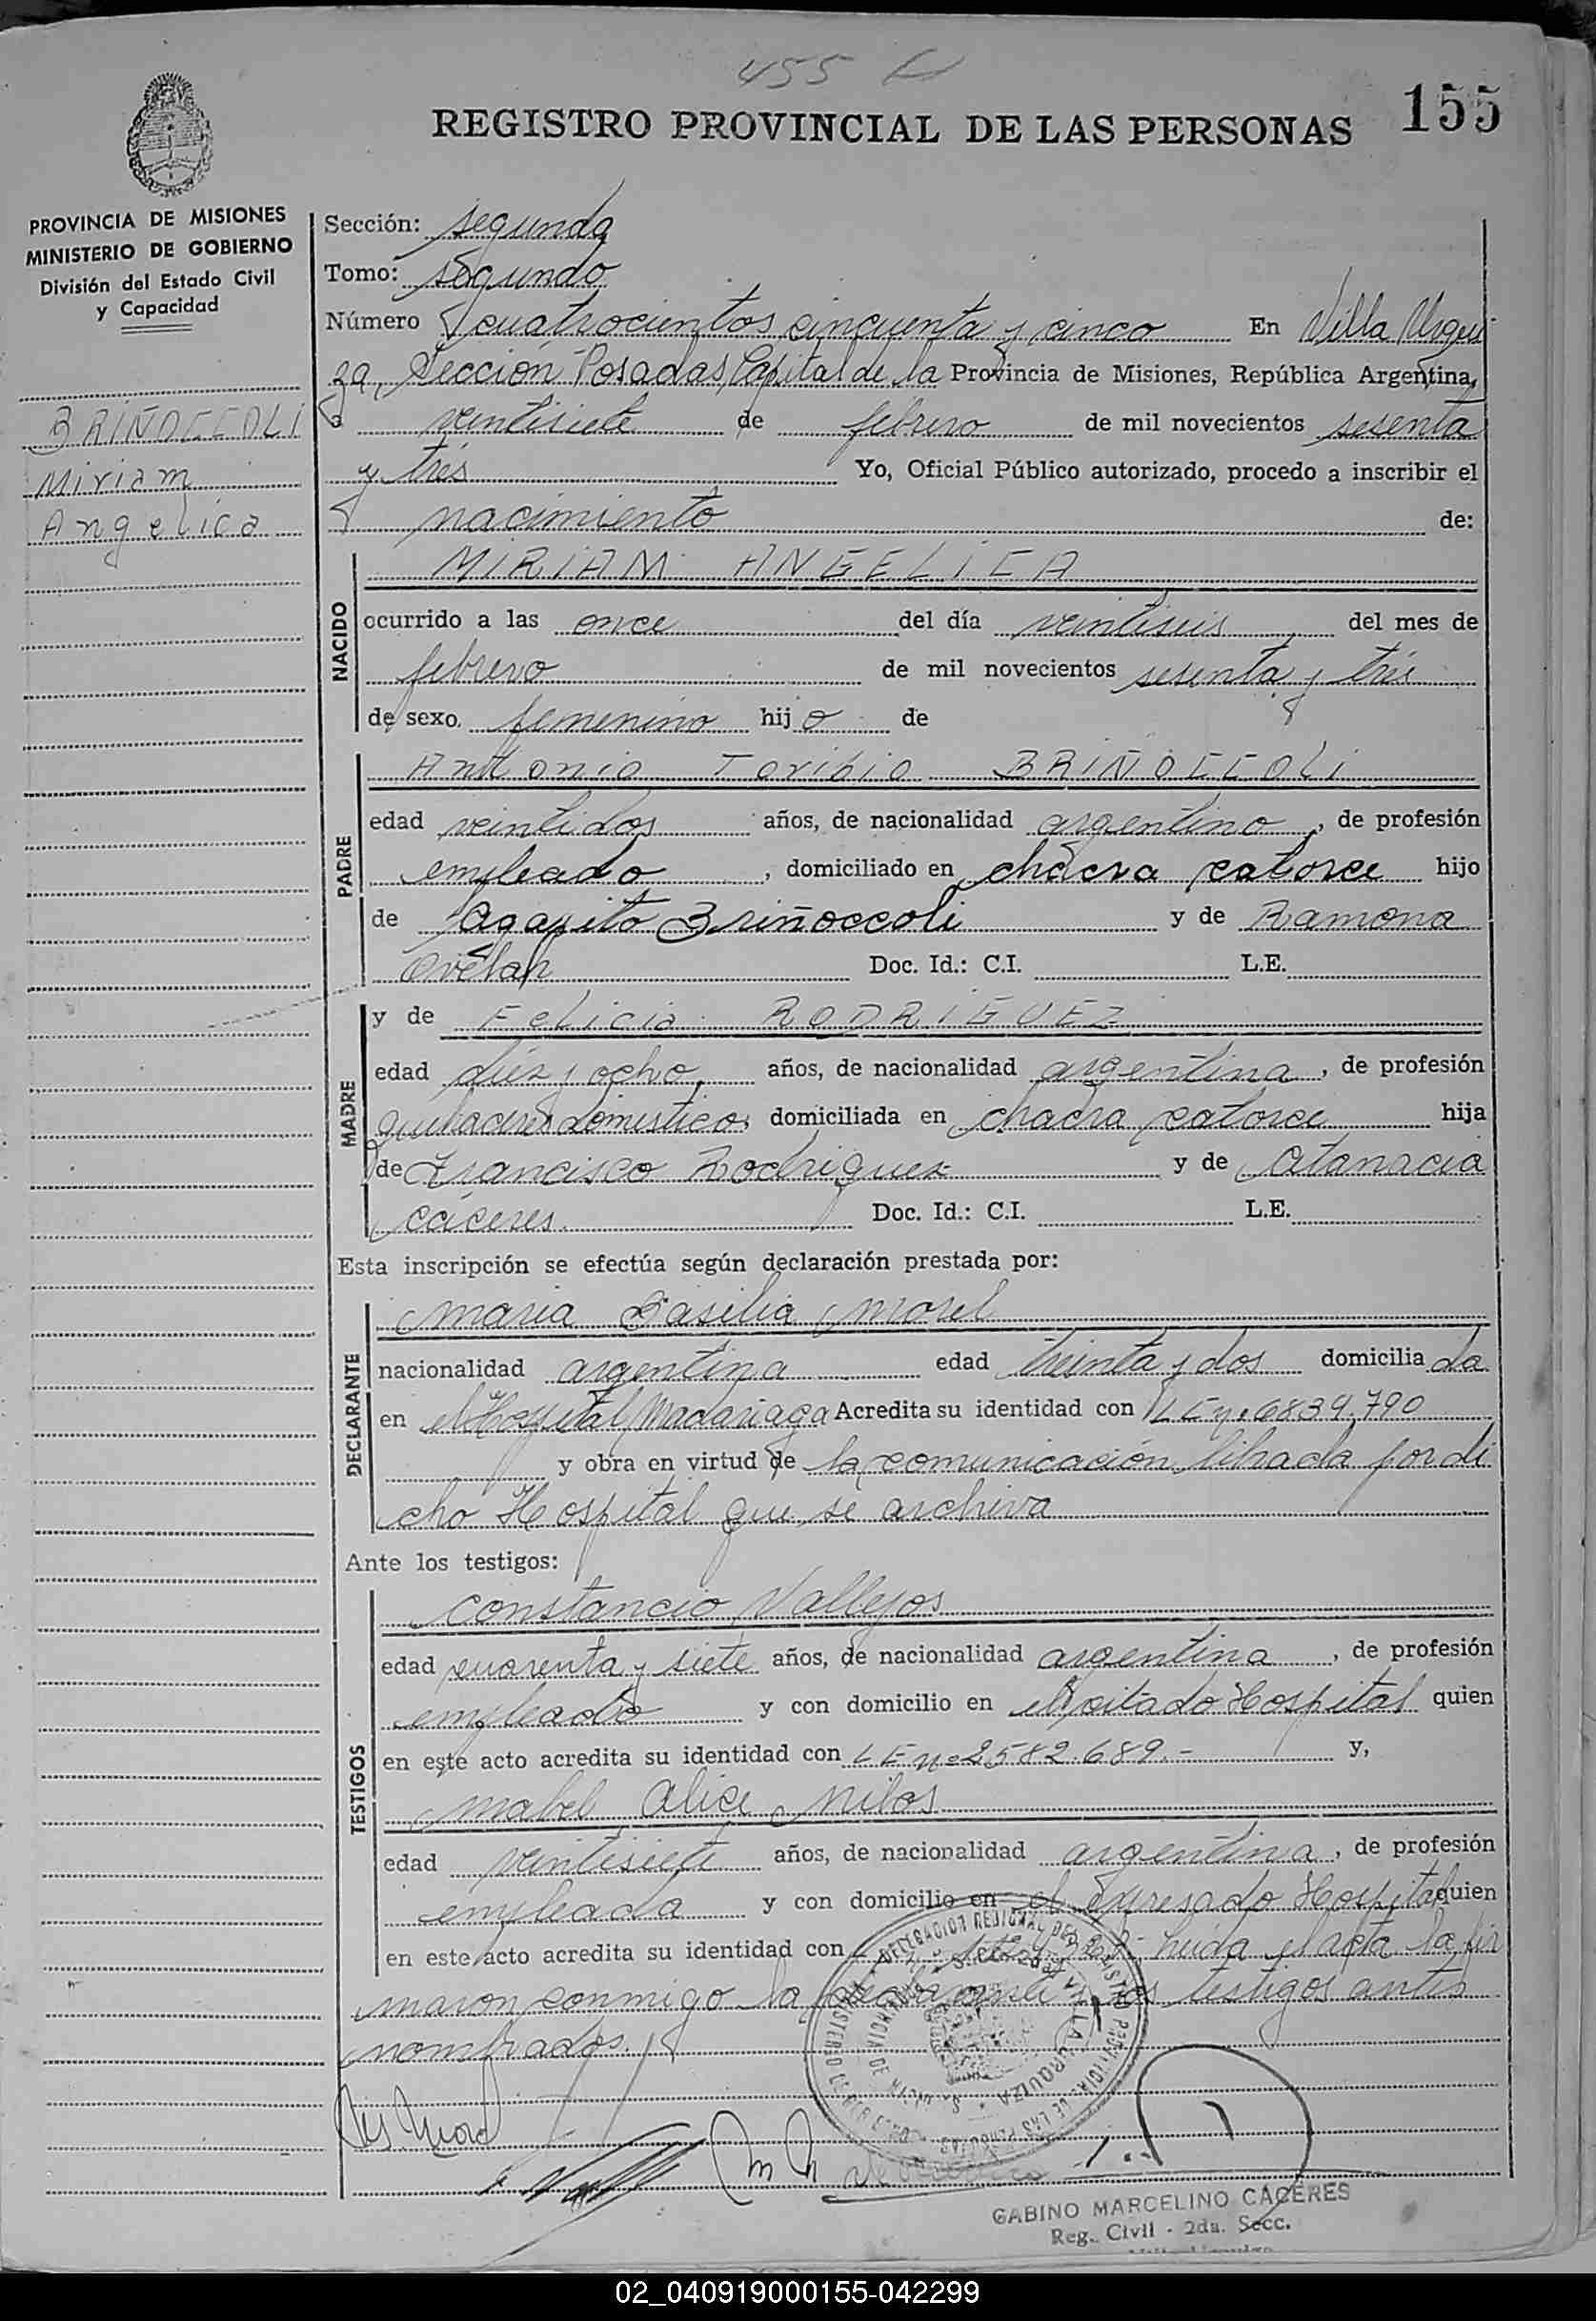 455
REGISTRO PROVINCIAL DE LAS PERSONAS 155
PROVINCIA DE MISIONES
MINISTERIO DE GOBIERNO
División del Estado Civil
y Capacidad
BRIÑOCCOLI
Miriam
Angelica
Sección: segunda
Tomo: segundo
Número cuatrocientos cincuenta y cinco En Villa Urqui
za, Sección Posadas, Capital de la Provincia de Misiones, República Argentina,
a veintisiete de febrero de mil novecientos sesenta
y tres Yo, Oficial Público autorizado, procedo a inscribir el
nacimiento de:
NACIDO
MIRIAM ANGELICA
ocurrido a las once del día veintiseis del mes de
febrero de mil novecientos sesenta y tres
de sexo. femenino hijo de
PADRE
Antonio Toribio BRIÑOCCOLI
edad veintidos años, de nacionalidad argentino, de profesión
empleado, domiciliado en chacra catorce hijo
de Agapito Briñoccoli y de Ramona
Ovelar Doc. Id.: C.I. L.E.
MADRE
y de Felicia RODRIGUEZ
edad diez y ocho, años, de nacionalidad argentina, de profesión
quehaceres domesticos domiciliada en chacra catorce hija
de Francisco Rodriguez y de Atanacia
Cáceres. Doc. Id.: C.I. L.E.
Esta inscripción se efectúa según declaración prestada por:
DECLARANTE
Maria Basilia Morel
nacionalidad argentina edad treinta y dos domiciliada
en el Hospital Madariaga Acredita su identidad con L E nº 6839.790
y obra en virtud de la comunicación librada por di
cho Hospital que se archiva
Ante los testigos:
TESTIGOS
Constancio Vallejos
edad cuarenta y siete años, de nacionalidad argentina, de profesión
empleado y con domicilio en el citado Hospital quien
en este acto acredita su identidad con L E nº 2582.689.- y,
Mabel Alice Milos
edad veintisiete años, de nacionalidad argentina, de profesión
empleada y con domicilio en el expresado Hospital quien
en este acto acredita su identidad con leida el acta la fir
maron conmigo la declarante y los testigos antes
nombrados.
VILLA URQUIZA
GABINO MARCELINO CÁCERES
Reg. Civil - 2da. Secc.
02_040919000155-042299